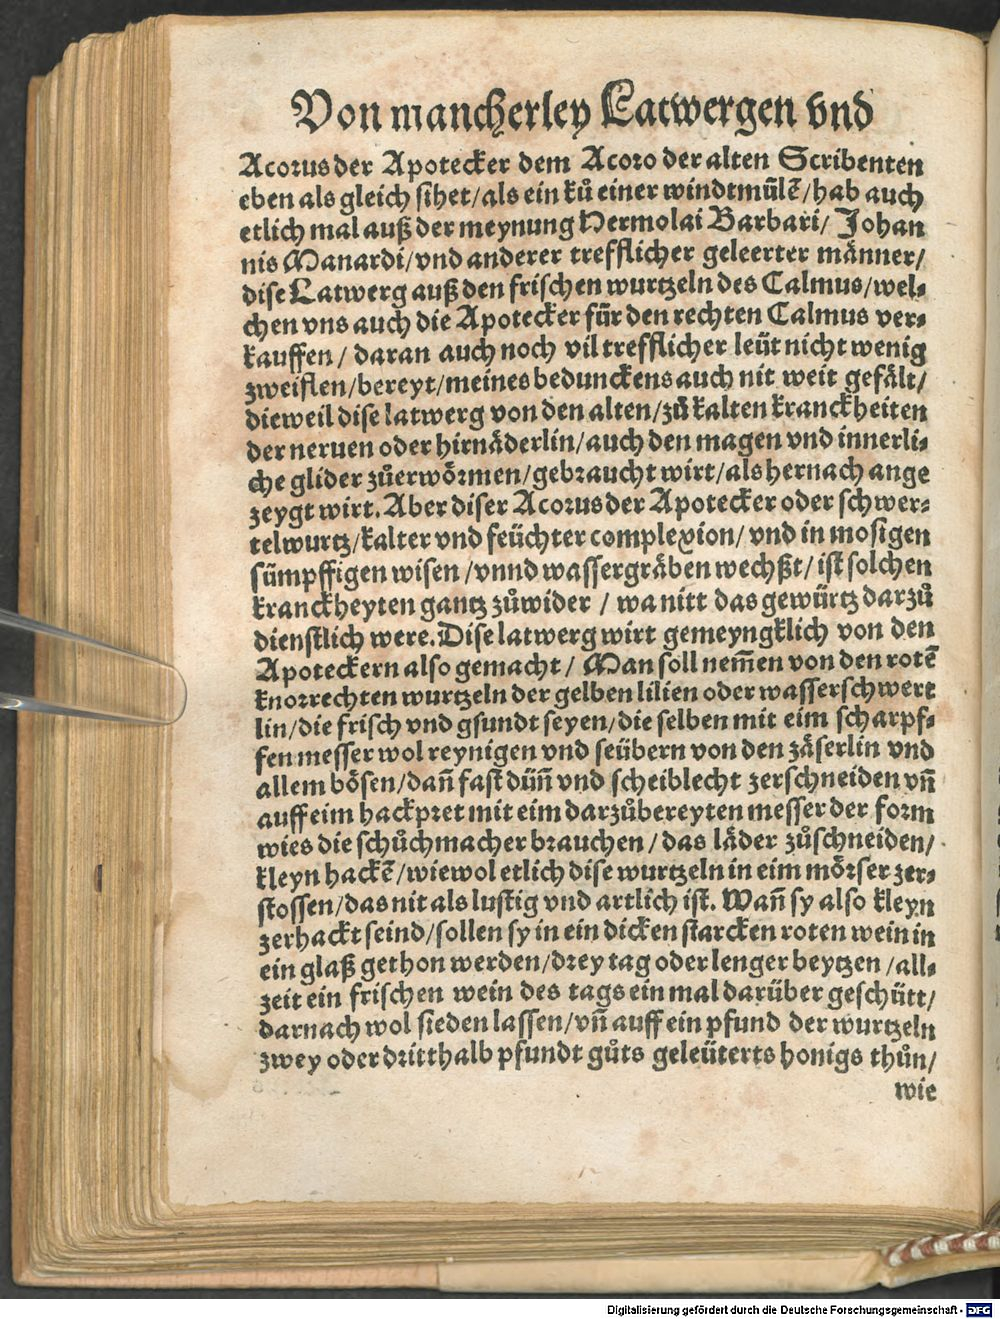 Von mancherley Latwergen vnd
Acorus der Apotecker dem Acoro der alten Scribenten
eben als gleich sihet/als ein ků einer windtmülẽ/hab auch
etlich mal auß der meynung Hermolai Barbari/ Johan
nis Manardi/vnd anderer trefflicher geleerter männer/
dise Latwerg auß den frischen wurtzeln des Calmus/wel⸗
chen vns auch die Apotecker für den rechten Calmus ver⸗
kauffen/ daran auch noch vil trefflicher leüt nicht wenig
zweiflen/bereyt/meines bedunckens auch nit weit gefält/
dieweil dise latwerg von den alten/zů kalten kranckheiten
der neruen oder hirnäderlin/auch den magen vnd innerli⸗
che glider zůerwörmen/gebraucht wirt/als hernach ange
zeygt wirt. Aber diser Acorus der Apotecker oder schwer⸗
telwurtz/kalter vnd feüchter complexion/ vnd in mosigen
sümpffigen wisen/vnnd wassergräben wechßt/ ist solchen
kranckheyten gantz zůwider / wa nitt das gewürtz darzů
dienstlich were. Dise latwerg wirt gemeyngklich von den
Apoteckern also gemacht/ Man soll nem̃en von den rotẽ
knorrechten wurtzeln der gelben lilien oder wasserschwert
lin/die frisch vnd gsundt seyen/die selben mit eim scharpf⸗
fen messer wol reynigen vnd seübern von den zäserlin vnd
allem bösen/dañ fast düñ vnd scheiblecht zerschneiden vñ
auff eim hackpret mit eim darzůbereyten messer der form
wies die schůchmacher brauchen/das läder zůschneiden/
kleyn hackẽ/wiewol etlich dise wurtzeln in eim mörser zer⸗
stossen/das nit als lustig vnd artlich ist. Wañ sy also kleyn
zerhackt seind/sollen sy in ein dicken starcken roten wein in
ein glaß gethon werden/drey tag oder lenger beytzen/all⸗
zeit ein frischen wein des tags ein mal darüber geschütt/
darnach wol sieden lassen/vñ auff ein pfund der wurtzeln
zwey oder dritthalb pfundt gůts geleüterts honigs thůn/
wie
Digitalisierung gefördert durch die Deutsche Forschungsgemeinschaft - DFG